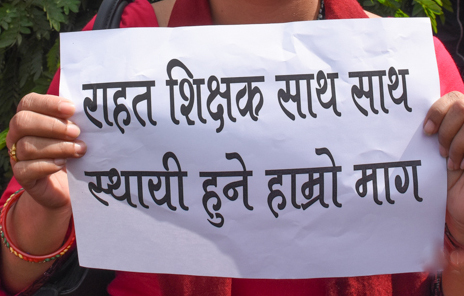 राहत शिक्षक साथ साथ
स्थायी हुने हाम्रो माग